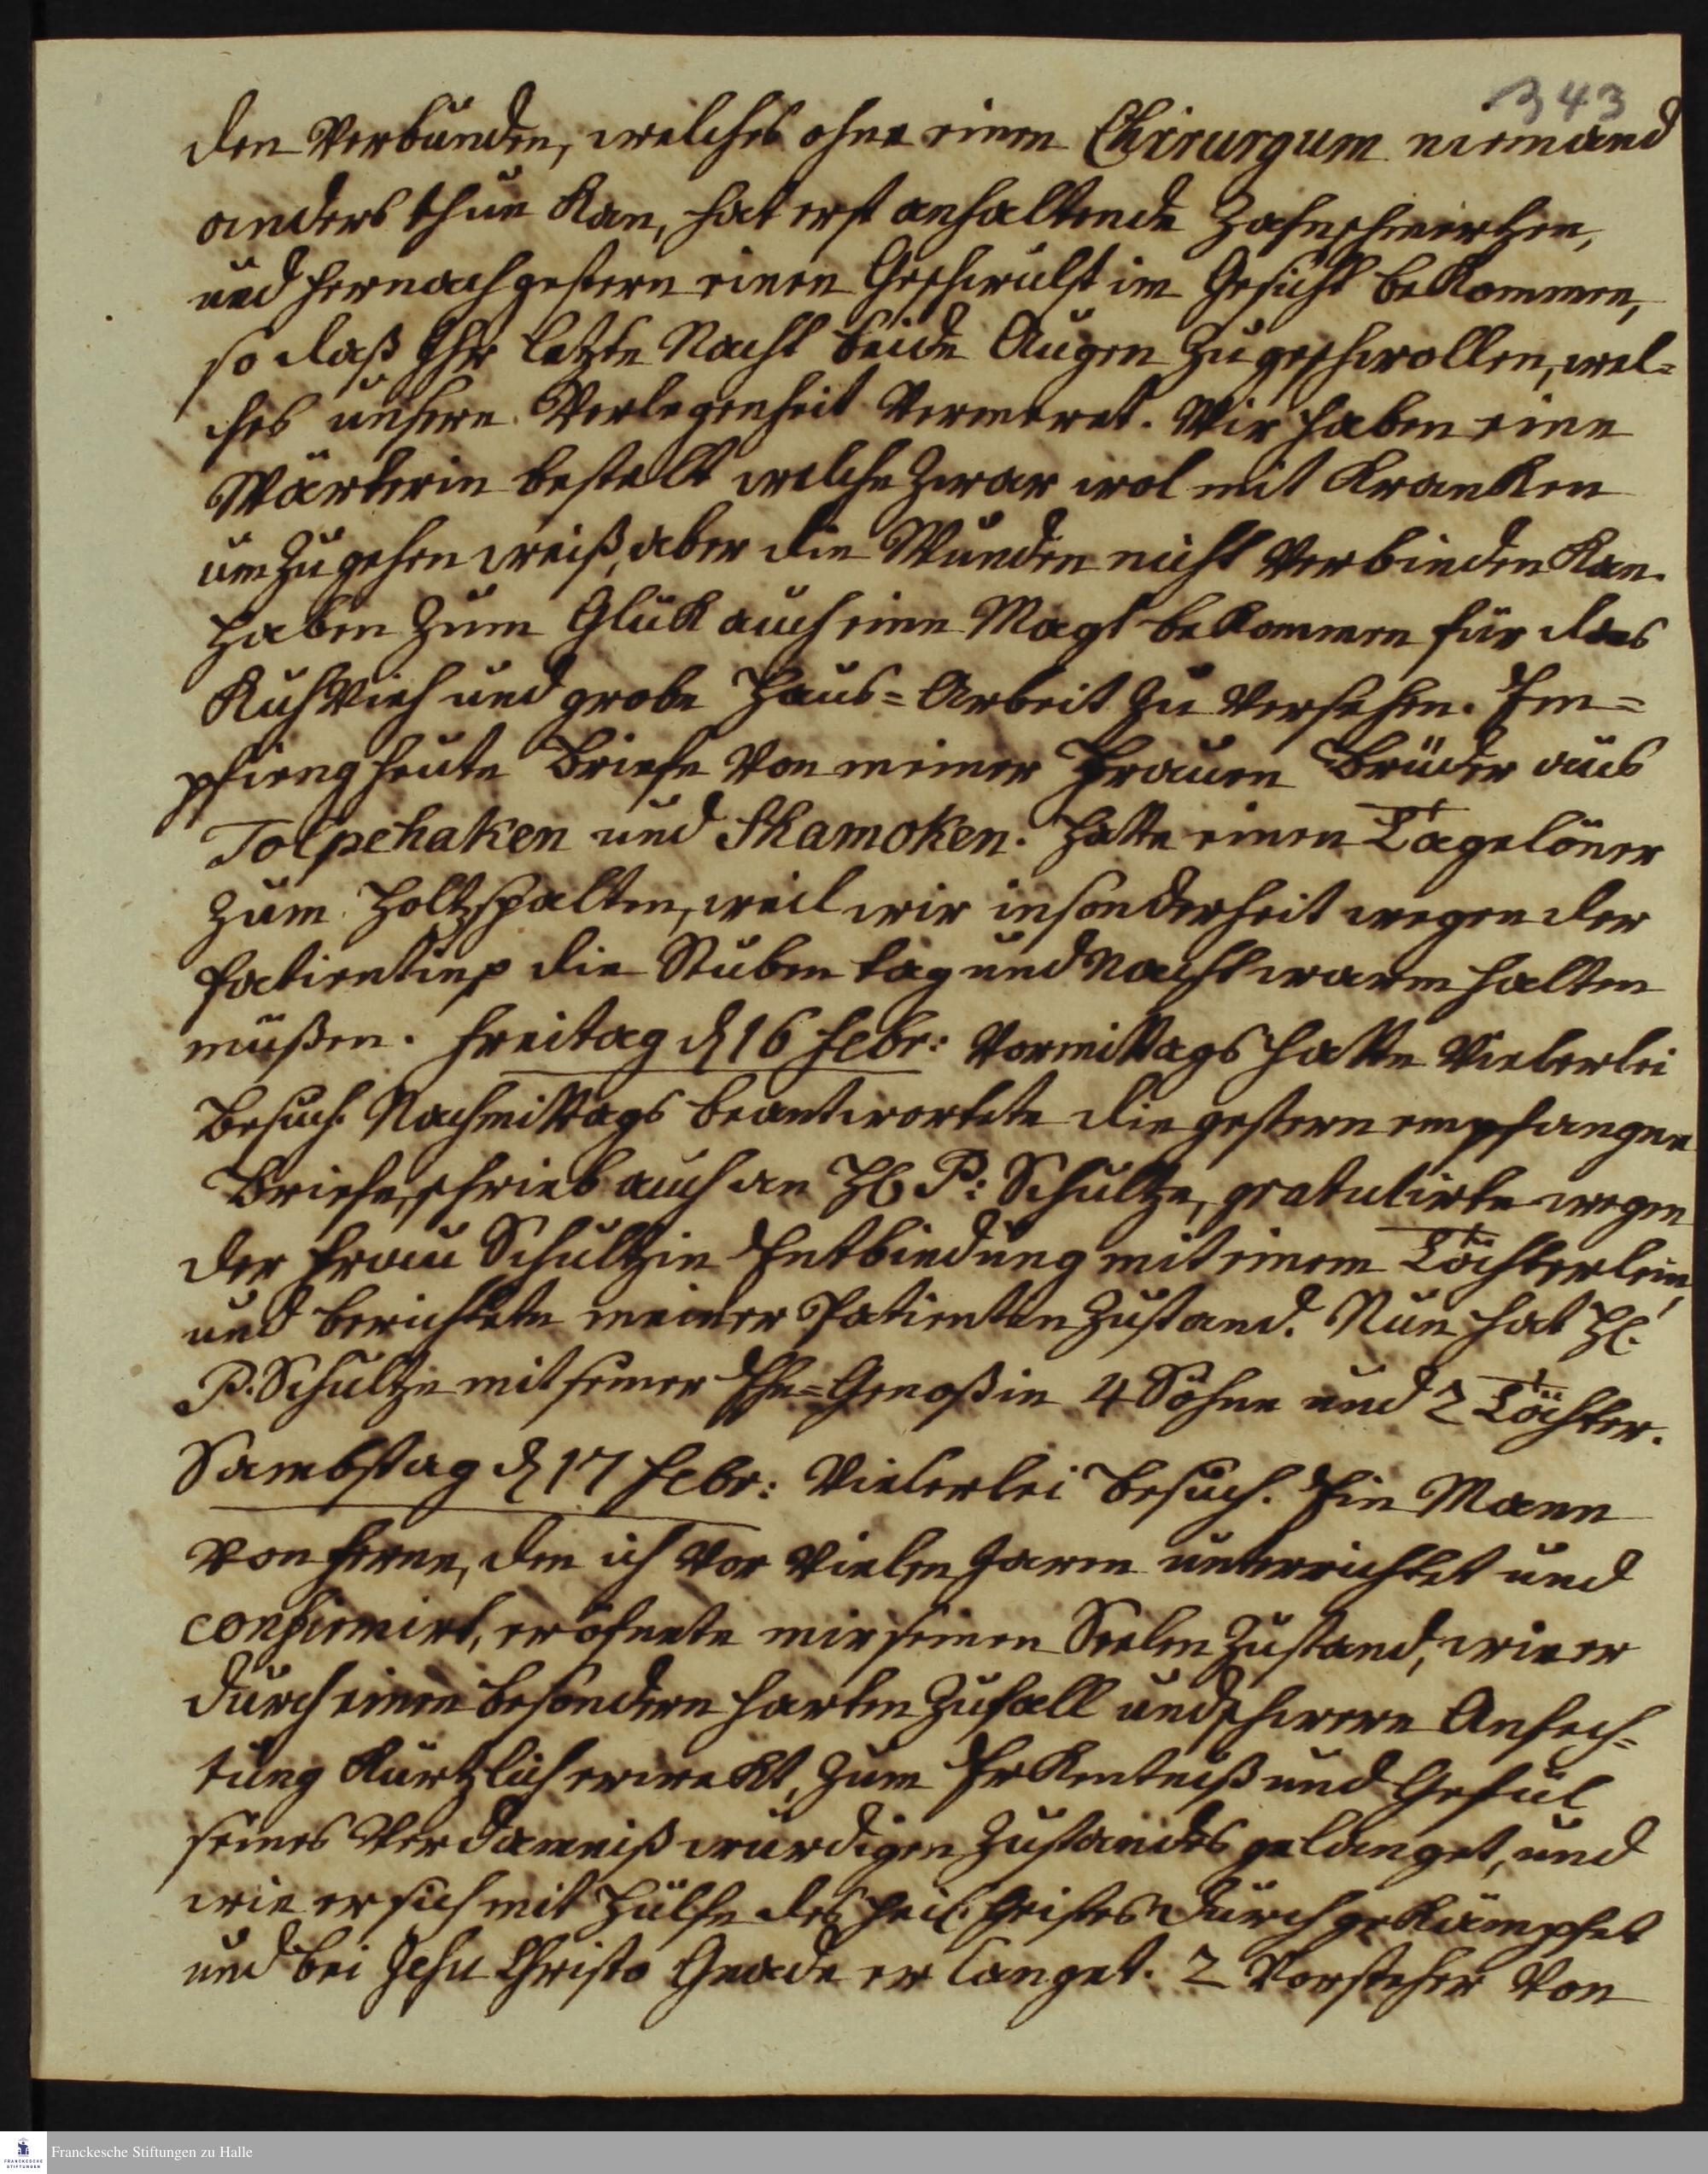 343
den verbunden, welches ohne einen Chirurgum niemand
anders thun kan, hat erst anhaltende Zahnschmertzen,
und hernach gestern einen Geschwulst im Gesicht bekommen,
so daß Ihr letzte Nacht beide Augen zu geschwollen, wel=
ches unsere Verlegenheit vermeret. Wir haben eine
Wärterin bestelt welche zwar wol mit Kranken
um zu gehen weiß, aber die Wunden nicht verbinden kan.
Haben zum Glük auch eine Magt bekommen für das
Kuh Vieh und grobe Haus=Arbeit zu versehen. Em=
pfieng heute Briefe von meiner Frauen Brüder aus
Tolpehaken und Shamoken. Hatte einen Tagelöner
zum Holtzspalten, weil wir insonderheit wegen der
Patientins die Stuben tag und Nacht warm halten
müßen. Freitag d 16 Febr: Vormittags hatte vielerlei
Besuch. Nachmittags beantwortete die gestern empfangne
Briefe, schrieb auch an H. P: Schultze, gratulirte wegen
der Frau Schultzin Entbindung mit einem Töchterlein,
und berichtete meiner Patienten Zustand. Nun hat H.
P. Schultze mit seiner Ehe=Genoßin 4 Söhne und 2 Töchter.
Sambstag d 17 Febr: Vielerlei Besuch. Ein Mann
von ferne, den ich vor vielen Jaren unterrichtet und
confirmirt, eröfnete mir seinen Seelen Zustand, wie er
durch einen besondern harten Zufall und schwere Anfech=
tung kürtzlich erwekt, zum Erkentniß und Gefül
seines Verdamniß würdigen Zustandes gelanget, und
wie er sich mit Hülfe des heil. Geistes durch gekämpfet
und bei Jesu Christo Gnade er langet. 2 Vorsteher von
Franckesche Stiftungen zu Halle
FRANCKESCHE
STIFTUNGEN